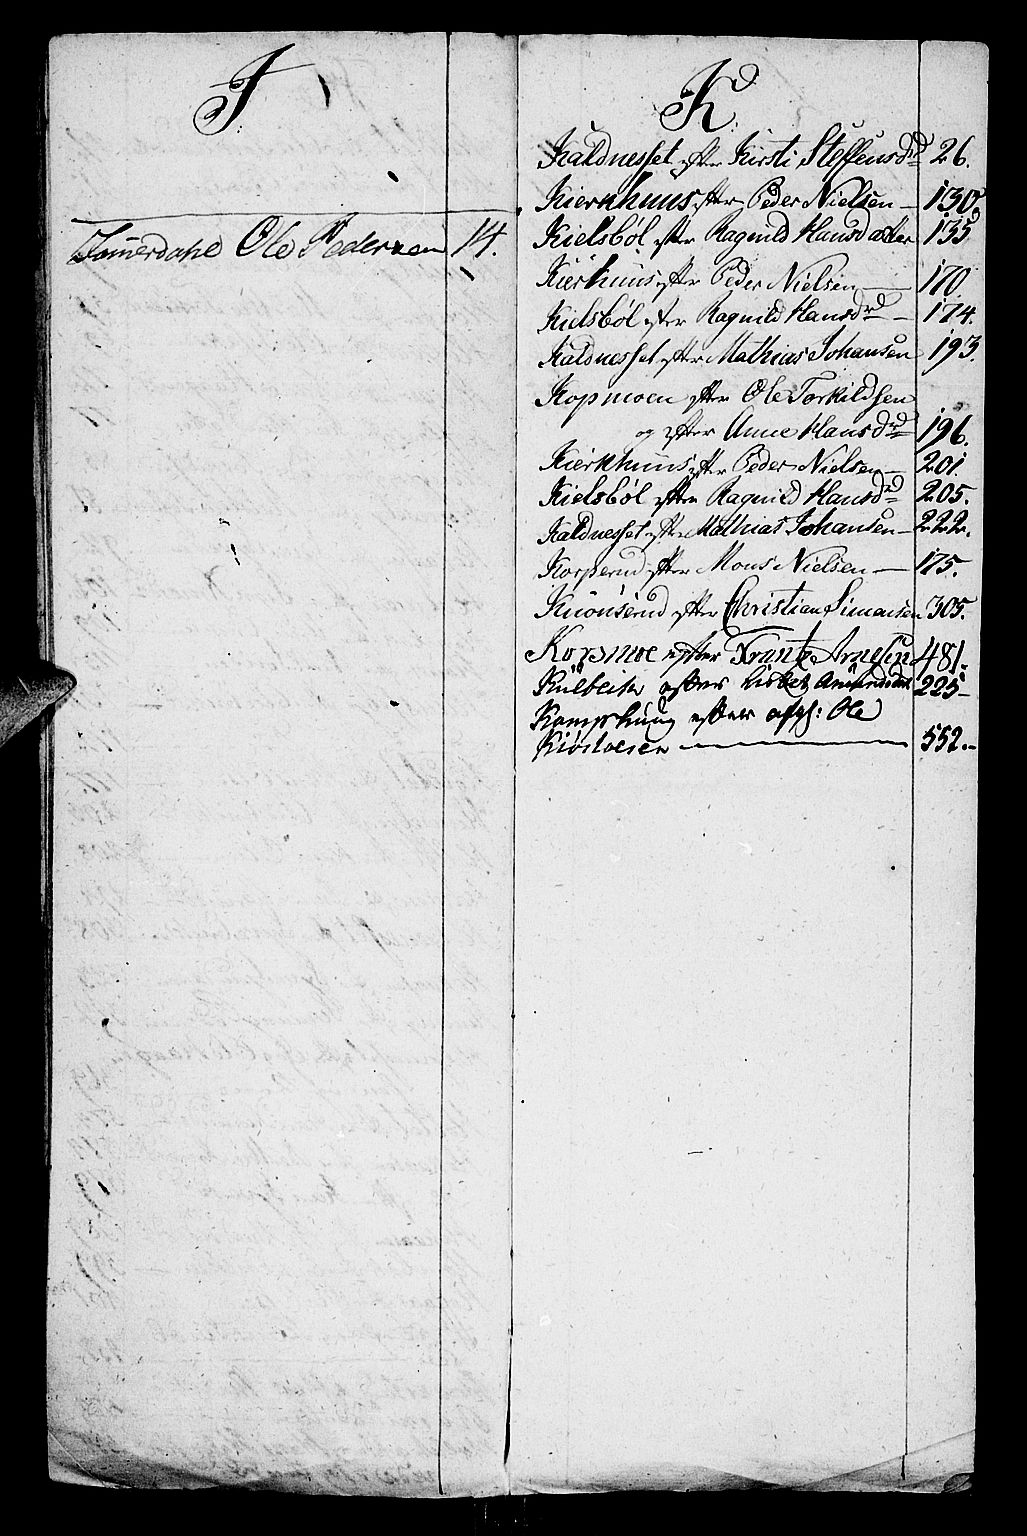 J
Ole Pedersen 14.
K
Kaldnesset efter Kirsti Steffensdr 26.
Kierkhuus efter Peder Nielsen — 130
Kielsböl efter Ragnild Hansdatter 135
Kierhuus efter Peder Nielsen — 170
Kielsböl efter Ragnild Hansdr — 174.
Kaldnesset efter Mathias Johansen 193.
Kopmoen efter Ole Torkildsen
og efter Anne Hansdr 196.
Kierkhuus efter Peder Nielsen — 201.
Kielsböl efter Ragnild Hansdr 205.
Kaldnesset efter Mathias Johansen — 222.
Korperud efter Mons Nielsen — 175.
Knönserud efter Christian Simensen 305.
Korsmoe efter Frantz Arnesen 481.
efter Lisbet 225
efter Ole
— 552.